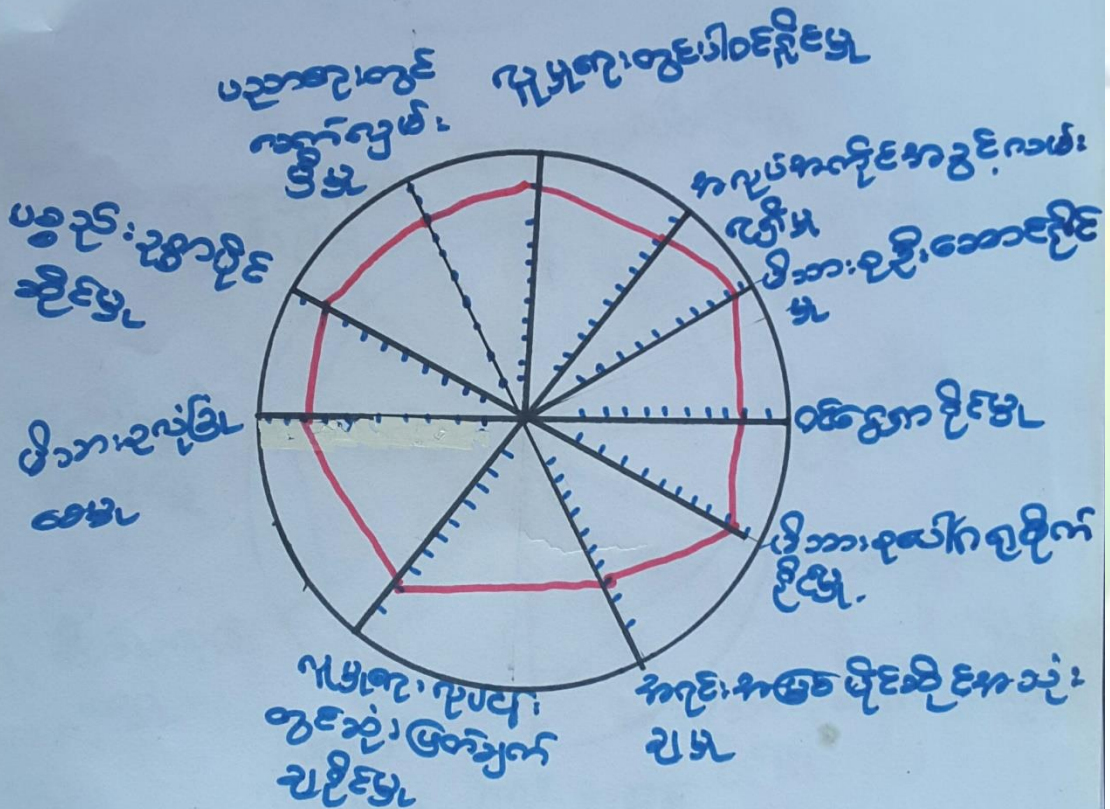 ပညာရေးတွင်
လက်လှမ်း
မှီမှု
လူမှုရေးတွင်ပါဝင်နိုင်မှု
အလုပ်အကိုင်အခွင့်လမ်း
ရရှိမှု
မိသားစုဦးဆောင်နိုင်
မှု
ဝင်ငွေရှာနိုင်မှု
မိသားစုပေါ်ဂရုစိုက်
နိုင်မှု.
အရင်းအမြစ်ပိုင်ဆိုင်အသုံး
ချမှု
လူမှုရေးလုပ်ငန်း
တွင်ဆုံးဖြတ်ချက်
ချနိုင်မှု
မိသားစုလုံခြုံ
စေမှု
ပစ္စည်းဥစ္စာပိုင်
ဆိုင်မှု